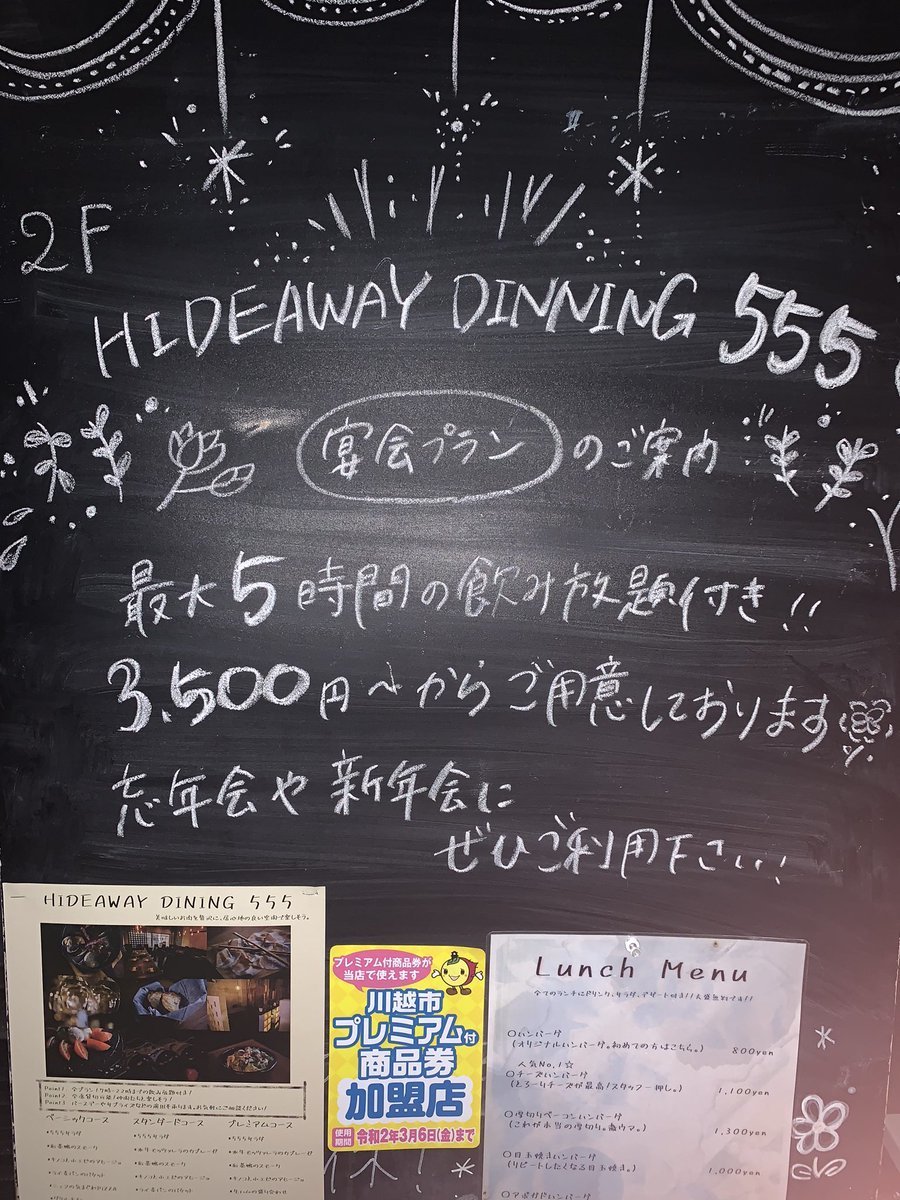 2F
HIDEAWAY DINNING 555
宴会プランのご案内
最大5時間の飲み放題付き!!
3,500円〜からご用意しております
忘年会や新年会に
ぜひご利用下さい!
HIDEAWAY DINING 555
美味しいお肉を贅沢に、居心地の良い空間で楽しもう。
ベーシックコース スタンダードコース プレミアムコース
プレミアム付商品券が
当店で使えます
川越市
プレミアム付
商品券
加盟店
使用期間 令和2年3月6日(金)まで
Lunch Menu
全てのランチにドリンク、サラダ、デザート付き!!大盛無料です!!
○ハンバーグ
(オリジナルハンバーグ。初めての方はこちら。) 800yen
人気No.1☆
○チーズハンバーグ
(とろーりチーズが最高!スタッフ一押し。) 1,100yen
○厚切りベーコンハンバーグ
(これが本当の厚切り。激ウマ。) 1,300yen
○目玉焼きハンバーグ
(リピートしたくなる目玉焼き。) 1,000yen
○アボカドハンバーグ